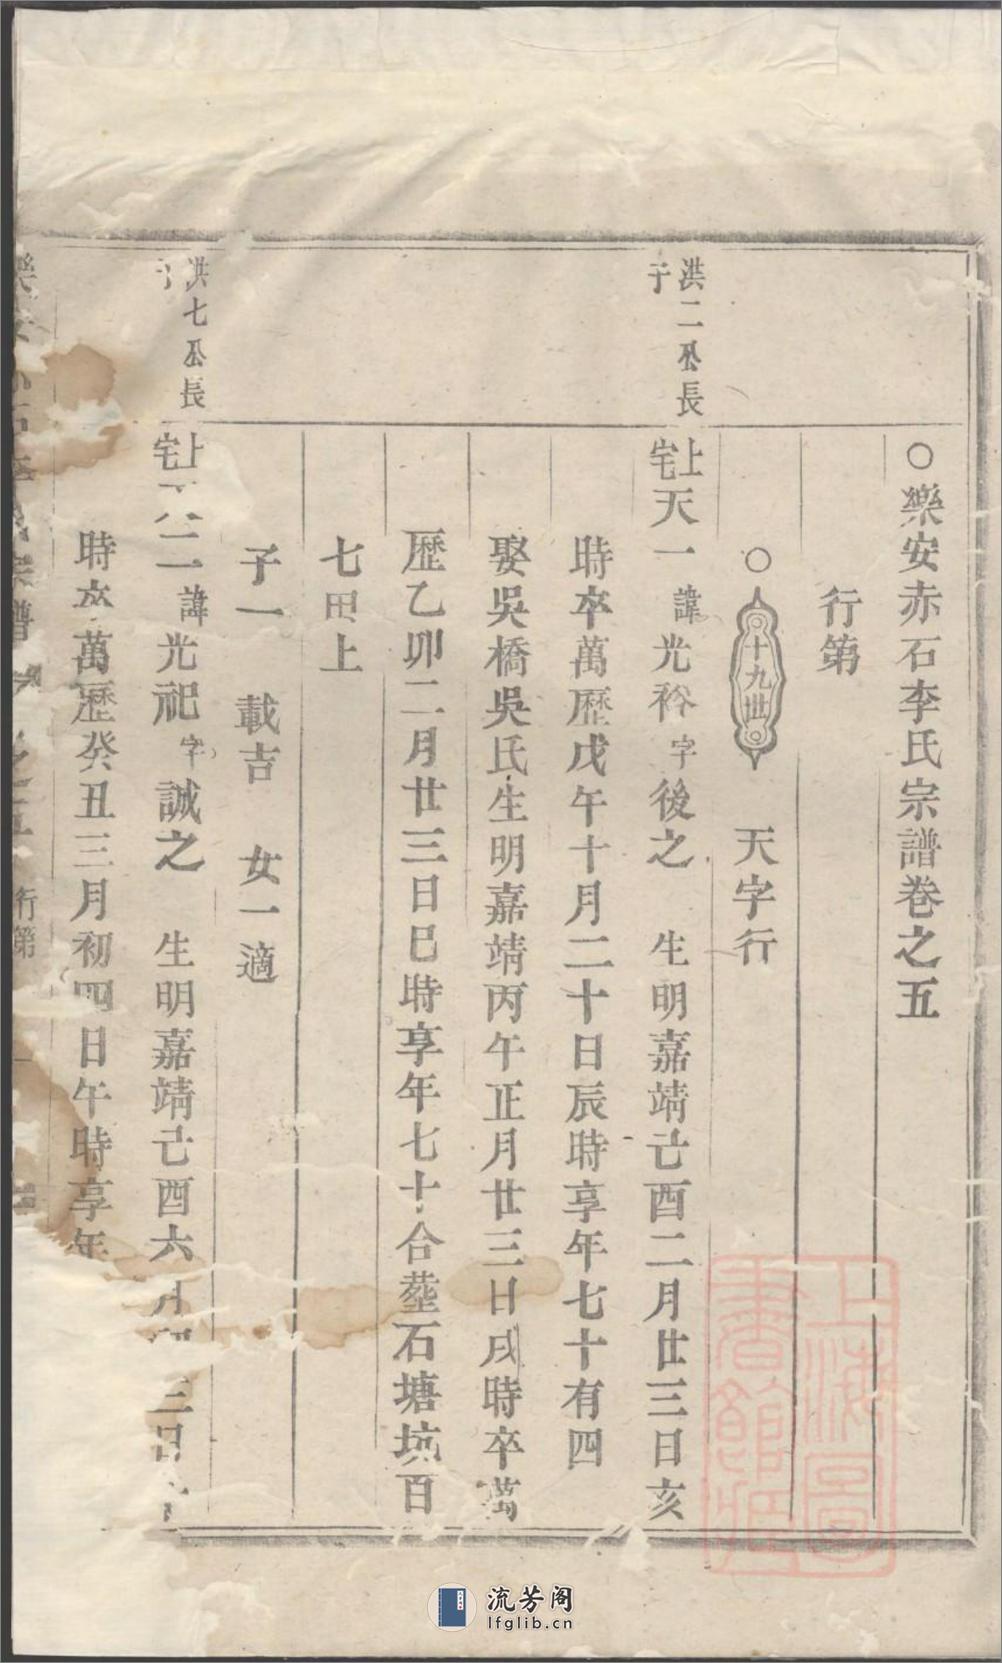 ○樂安赤石李氏宗譜卷之五
行第
○十九世 天字行
洪二公長子
上宅天一諱光裕字後之 生明嘉靖己酉二月廿三日亥
時卒萬歷戊午十月二十日辰時享年七十有四
娶吳橋吳氏生明嘉靖丙午正月廿三日戌時卒萬
歷乙卯二月廿三日巳時享年七十合塟石塘坑百
七田上
子一 載吉 女一適
洪七公長
上宅 二諱光祀字誠之 生明嘉靖己酉六月 三日
時卒萬歷癸丑三月初四日午時享年
宗譜 行第
上海圖書館藏
流芳阁
lfglib.cn